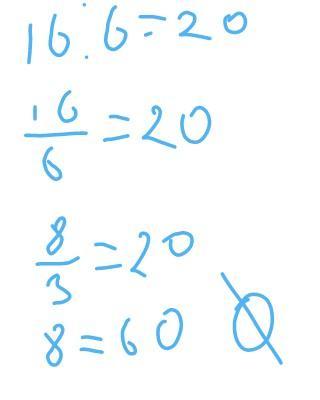 16 : 6 = 20
16/6 = 20
8/3 = 20
8 = 60 ∅